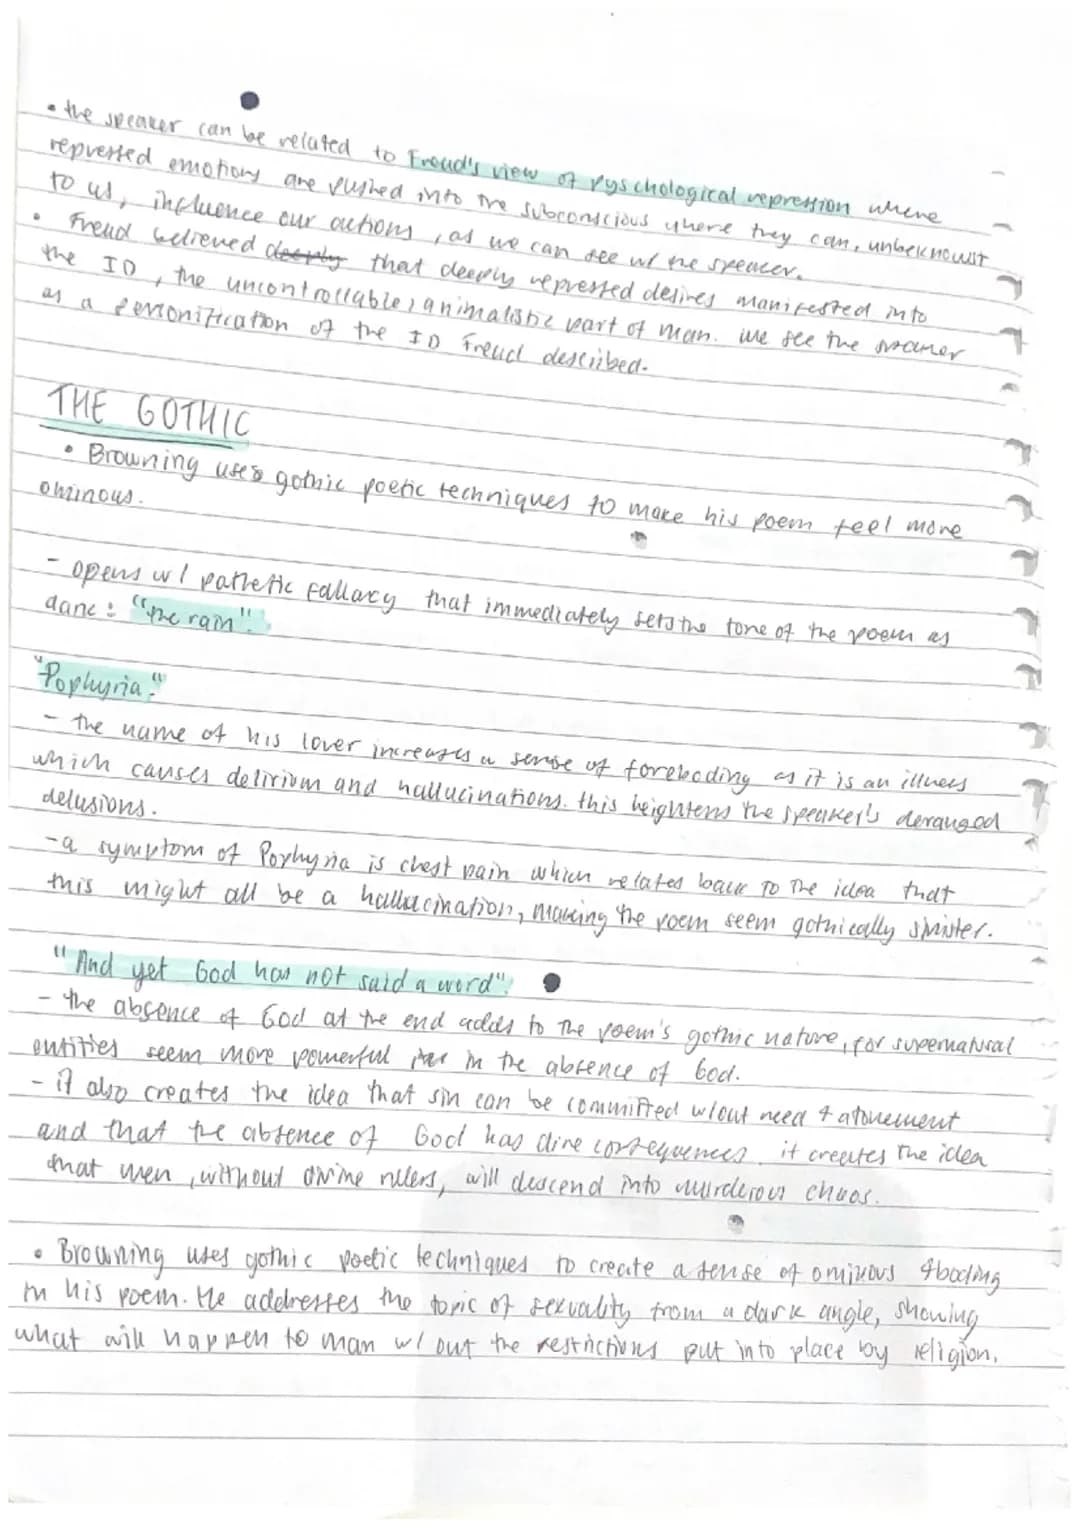 • the speaker can be related to Freud's view of pyschological repression where
repressed emotions are pushed into the subconscious where they can, unbeknowst
to us, influence our actions, as we can see w/ the speaker.
• Freud believed deeply that deeply repressed desires manifested into
the ID, the uncontrollable, animalistic part of man. We see the speaker
as a personification of the ID Freud described.
THE GOTHIC
• Browning uses gothic poetic techniques to make his poem feel more
ominous.
- opens w/ pathetic fallacy that immediately sets the tone of the poem as
dark: "the rain".
"Pophyria."
- the name of his lover increases a sense of foreboding as it is an illness
which causes delirium and hallucinations. this heightens the speaker's deranged
delusions.
- a symptom of Porphyria is chest pain which relates back to the idea that
this might all be a hallucination, making the poem seem gothically sinister.
"And yet God has not said a word".
- the absence of God at the end adds to the poem's gothic nature, for supernatural
entities seem more powerful in the absence of God.
- it also creates the idea that sin can be committed w/out need 4 atonement
and that the absence of God has dire consequences. it creates the idea
that men, without divine rulers, will descend into murderous chaos.
• Browning uses gothic poetic techniques to create a sense of ominous 4boding
in his poem. He addresses the topic of sexuality from a dark angle, showing
what will happen to man w/out the restrictions put into place by religion.